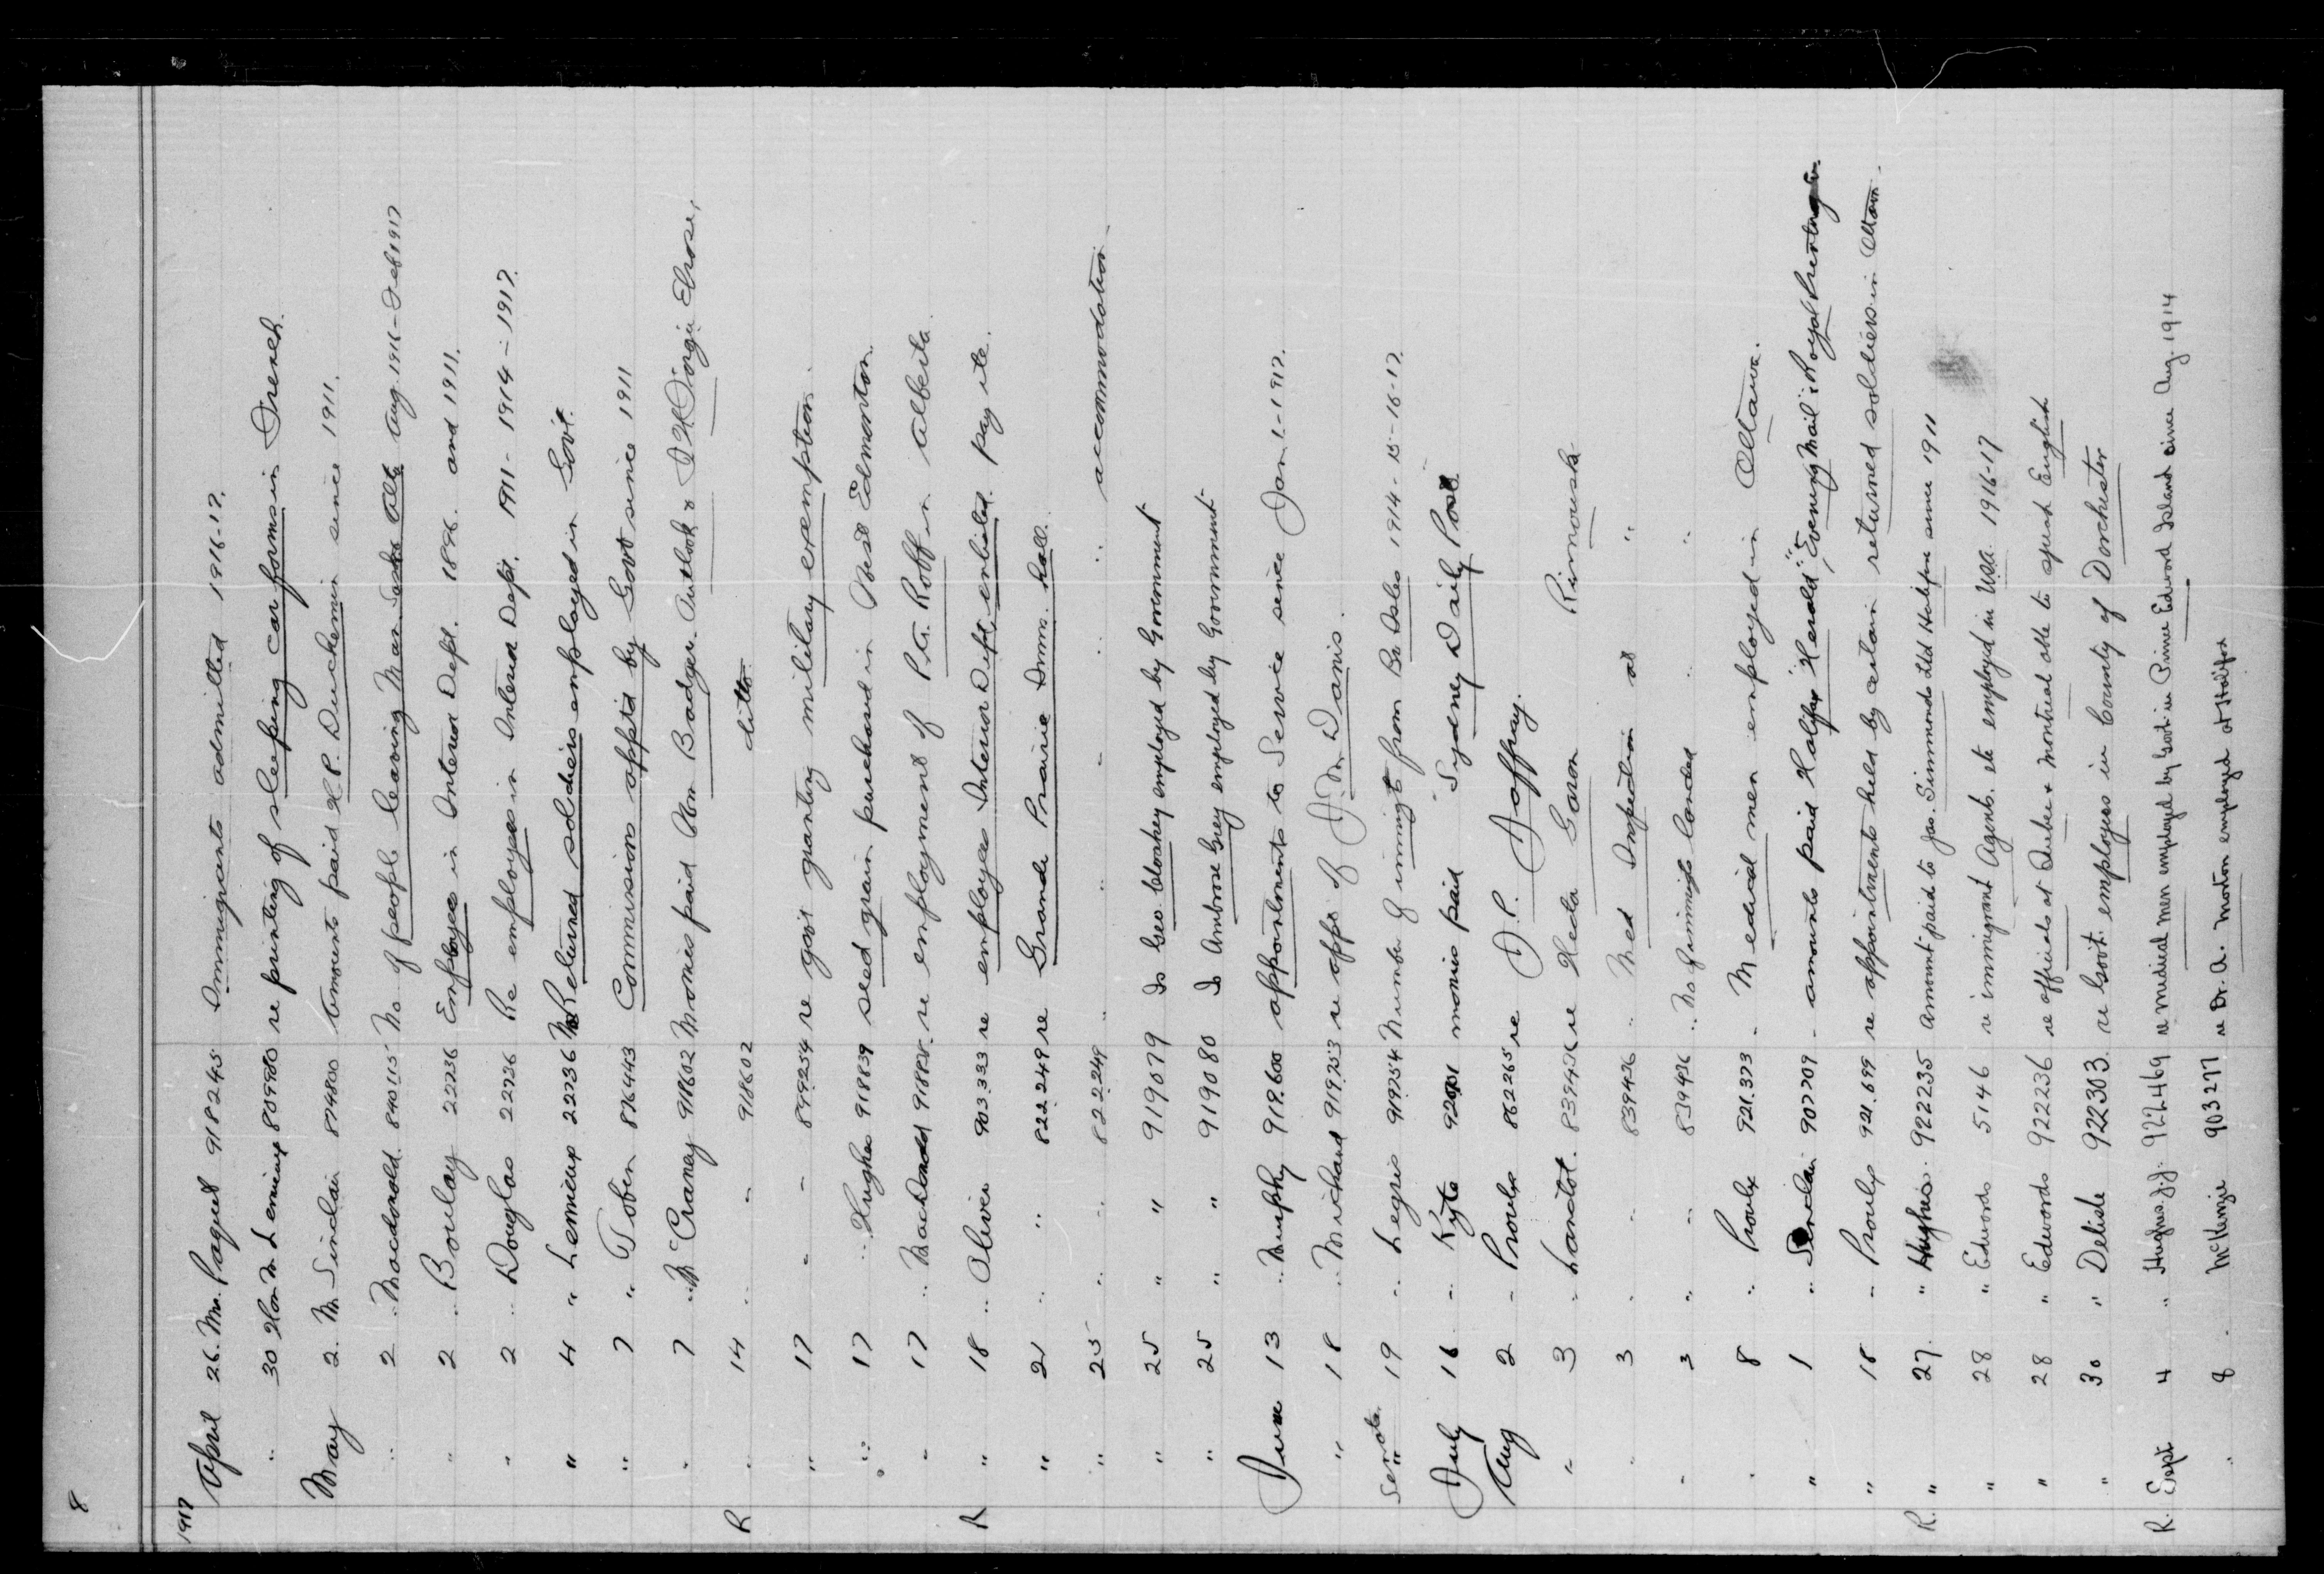 8
1917
April 26. Mr. Paquet 918245 Immigrants admitted 1916-17.
" 30 Hon M Lemieux 809980 re printing of sleeping car forms in French.
May 2. Mr Sinclair 874800 Amounts paid H.P. Duchemin since 1911.
" 2 " Macdonald 840115 No of people leaving Man Sask Alta Aug 1916 - Feb 1917
" 2 " Boulay 22236 Employees in Interior Dept. 1896. and 1911.
" 2 " Douglas 22236 Re employees in Interior Dept. 1911 - 1914 - 1917.
" 4 " Lemieux 22236 Returned soldiers employed in Govt.
" 7 " Tobin 876443 Commissions apptd by Govt since 1911
" 7 " McCraney 918602 Monies paid Wm Badger. Outlook &
R " 14 " " 918602 ditto
" 17 " " 899254 re govt granting military exemption.
" 17 " Hughes 918839 seed grain purchased in West Edmonton.
" 17 " MacDonald re employment of in Alberta
R " 18 " Oliver 903333 re employees Interior Dept. enlisted. pay etc.
" 21 " " 822249 re Grande Prairie Imm. hall.
" 25 " " 822249 " " " " " accommodation.
" 25 " " 919079 Is Geo. Cloakey employed by Government
" 25 " " 919080 Is Ambrose Grey employed by Government
June 13 " Murphy 919.600 appointments to Service since Jan 1-1917.
" 18 " Michaud 919253 re appt of J.Dn Danis.
Senate " 19 " Legris 919754 Number of immigts from Br Isles 1914-15-16-17.
July 16 " Kyte monies paid Sydney Daily Post
Aug 2 " Proulx 862265 re D.P. Jaffray.
" 3 " Lanctot. 839436 re Hecta Garon Rimouski
" 3 " " 839436 " Med Inspection at "
" 3 " " 839436 " No of immigts landed " "
" 8 " Proulx 921.373 " Medical men employed in Ottawa.
" 1 " Sinclair 907709 " amounts paid Halifax "Herald", "Evening Mail" & Royal Printing Co.
" 18 " Proulx 921.699 re appointments held by certain returned soldiers in Ottawa.
R. " 27. " Hughes. 922235 Amount paid to Jas. Simmonds Ltd Halifax since 1911
" 28 " Edwards 5146 re immigrant Agents. etc employed in USA. 1916-17
" 28 " Edwards 922236 re officials at Quebec & Montreal able to speak English
" 30 " Delisle 922303. re Govt. employees in County of Dorchester
R. Sept 4 " Hughes J.J. 922469 re medical men employed by Govt in Prince Edward Island since Aug. 1914
" 8 . McKenzie 903277 re Dr. A. Morton employed at Halifax